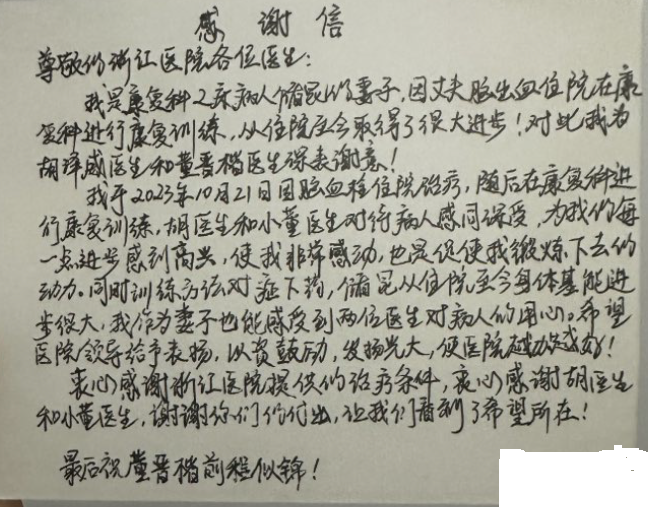 感谢信
尊敬的浙江医院各位医生:
我是康复科2床病人储昆的妻子,因丈夫脑出血住院在康
复科进行康复训练,从住院至今取得了很大进步!对此我为
胡泽威医生和董晋楷医生深表谢意!
我于2023年10月21日因脑血栓住院治疗,随后在康复科进
行康复训练,胡医生和小董医生对待病人感同深爱,为我的每
一点进步感到高兴,使我非常感动,也是促使我锻炼下去的
动力。同时训练方法对症下药,储昆从住院至今身体基能进
步很大,我作为妻子也能感受到两位医生对病人的用心。希望
医院领导给予表扬,以资鼓励,发扬光大,使医院越办越好!
衷心感谢浙江医院提供的治疗条件,衷心感谢胡医生
和小董医生,谢谢你们的付出,让我们看到了希望所在!
最后祝董晋楷前程似锦!